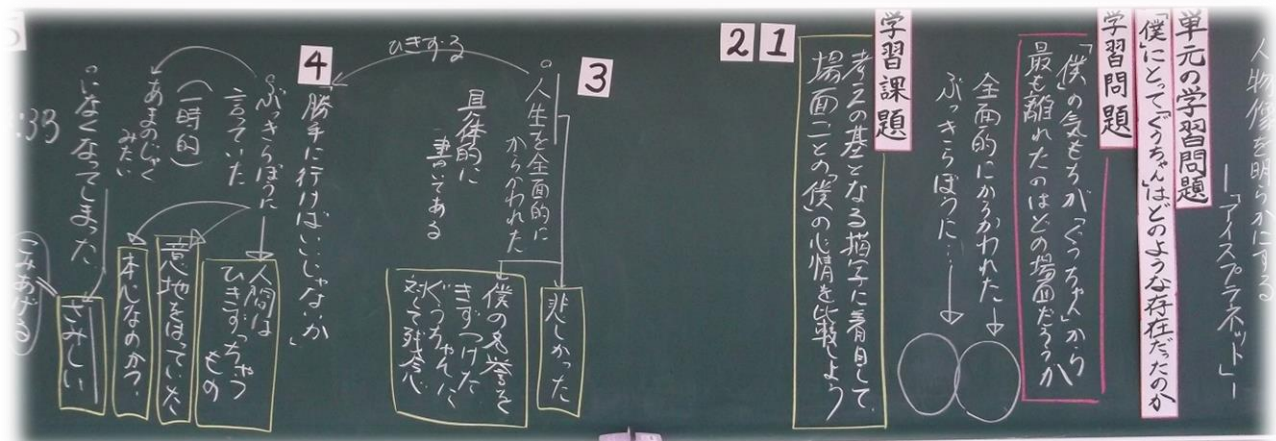 人物像を明らかにする
―「アイスプラネット」―
単元の学習問題
「僕」にとって「ぐうちゃん」はどのような存在だったのか
学習問題
「僕」の気もちが「ぐうちゃん」から
最も離れたのはどの場面だろうか
全面的にからかわれた
ぶっきらぼうに…
学習課題
考えの基となる描写に着目して、
場面ごとの「僕」の心情を比較しよう
1
2
3
人生を全面的に
からかわれた
具体的に
書いてある
悲しかった
僕の名誉を
きずつけた
ぐうちゃんに
対して残念
ひきずる
4
「勝手に行けばいいじゃないか」
ぶっきらぼうに
言っていた
(一時的)
あまのじゃく
みたい
人間は
ひきずっちゃう
もの
意地をはっていた
本心なのか?
いなくなってしまった
さみしい
こみあげる
:33